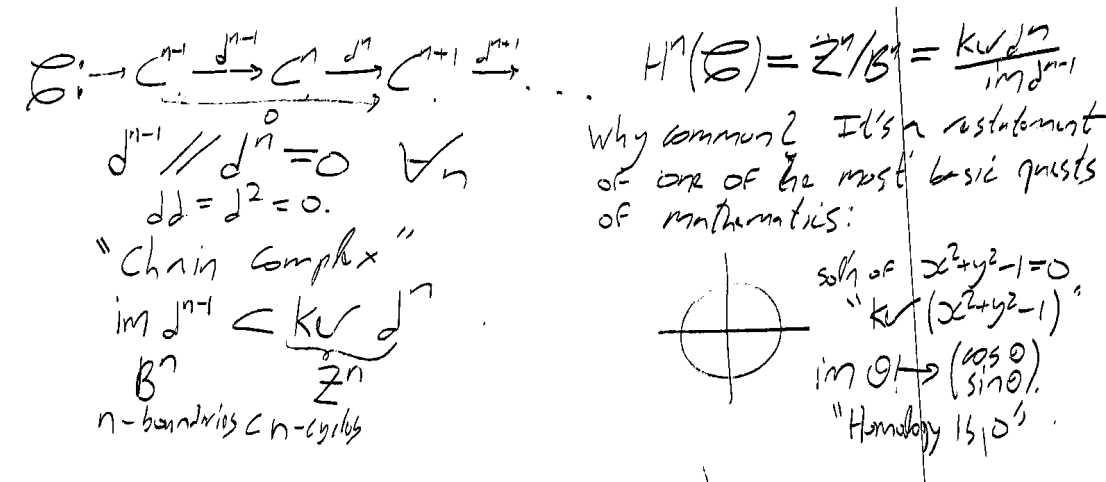 𝒞: → Cⁿ⁻¹ —dⁿ⁻¹→ Cⁿ —dⁿ→ Cⁿ⁺¹ —dⁿ⁺¹→ ...
0
dⁿ⁻¹ // dⁿ = 0 ∀n
dd = d² = 0.
"Chain complex"
im dⁿ⁻¹ ⊂ ker dⁿ
Bⁿ Zⁿ
n-boundries ⊂ n-cycles
Hⁿ(𝒞) = Zⁿ/Bⁿ = ker dⁿ / im dⁿ⁻¹
Why common? It's a restatement
of one of the most basic quests
of mathematics:
sol'n of x²+y²-1=0
"ker (x²+y²-1)"
im θ ↦ (cos θ
sin θ).
"Homology is 0".